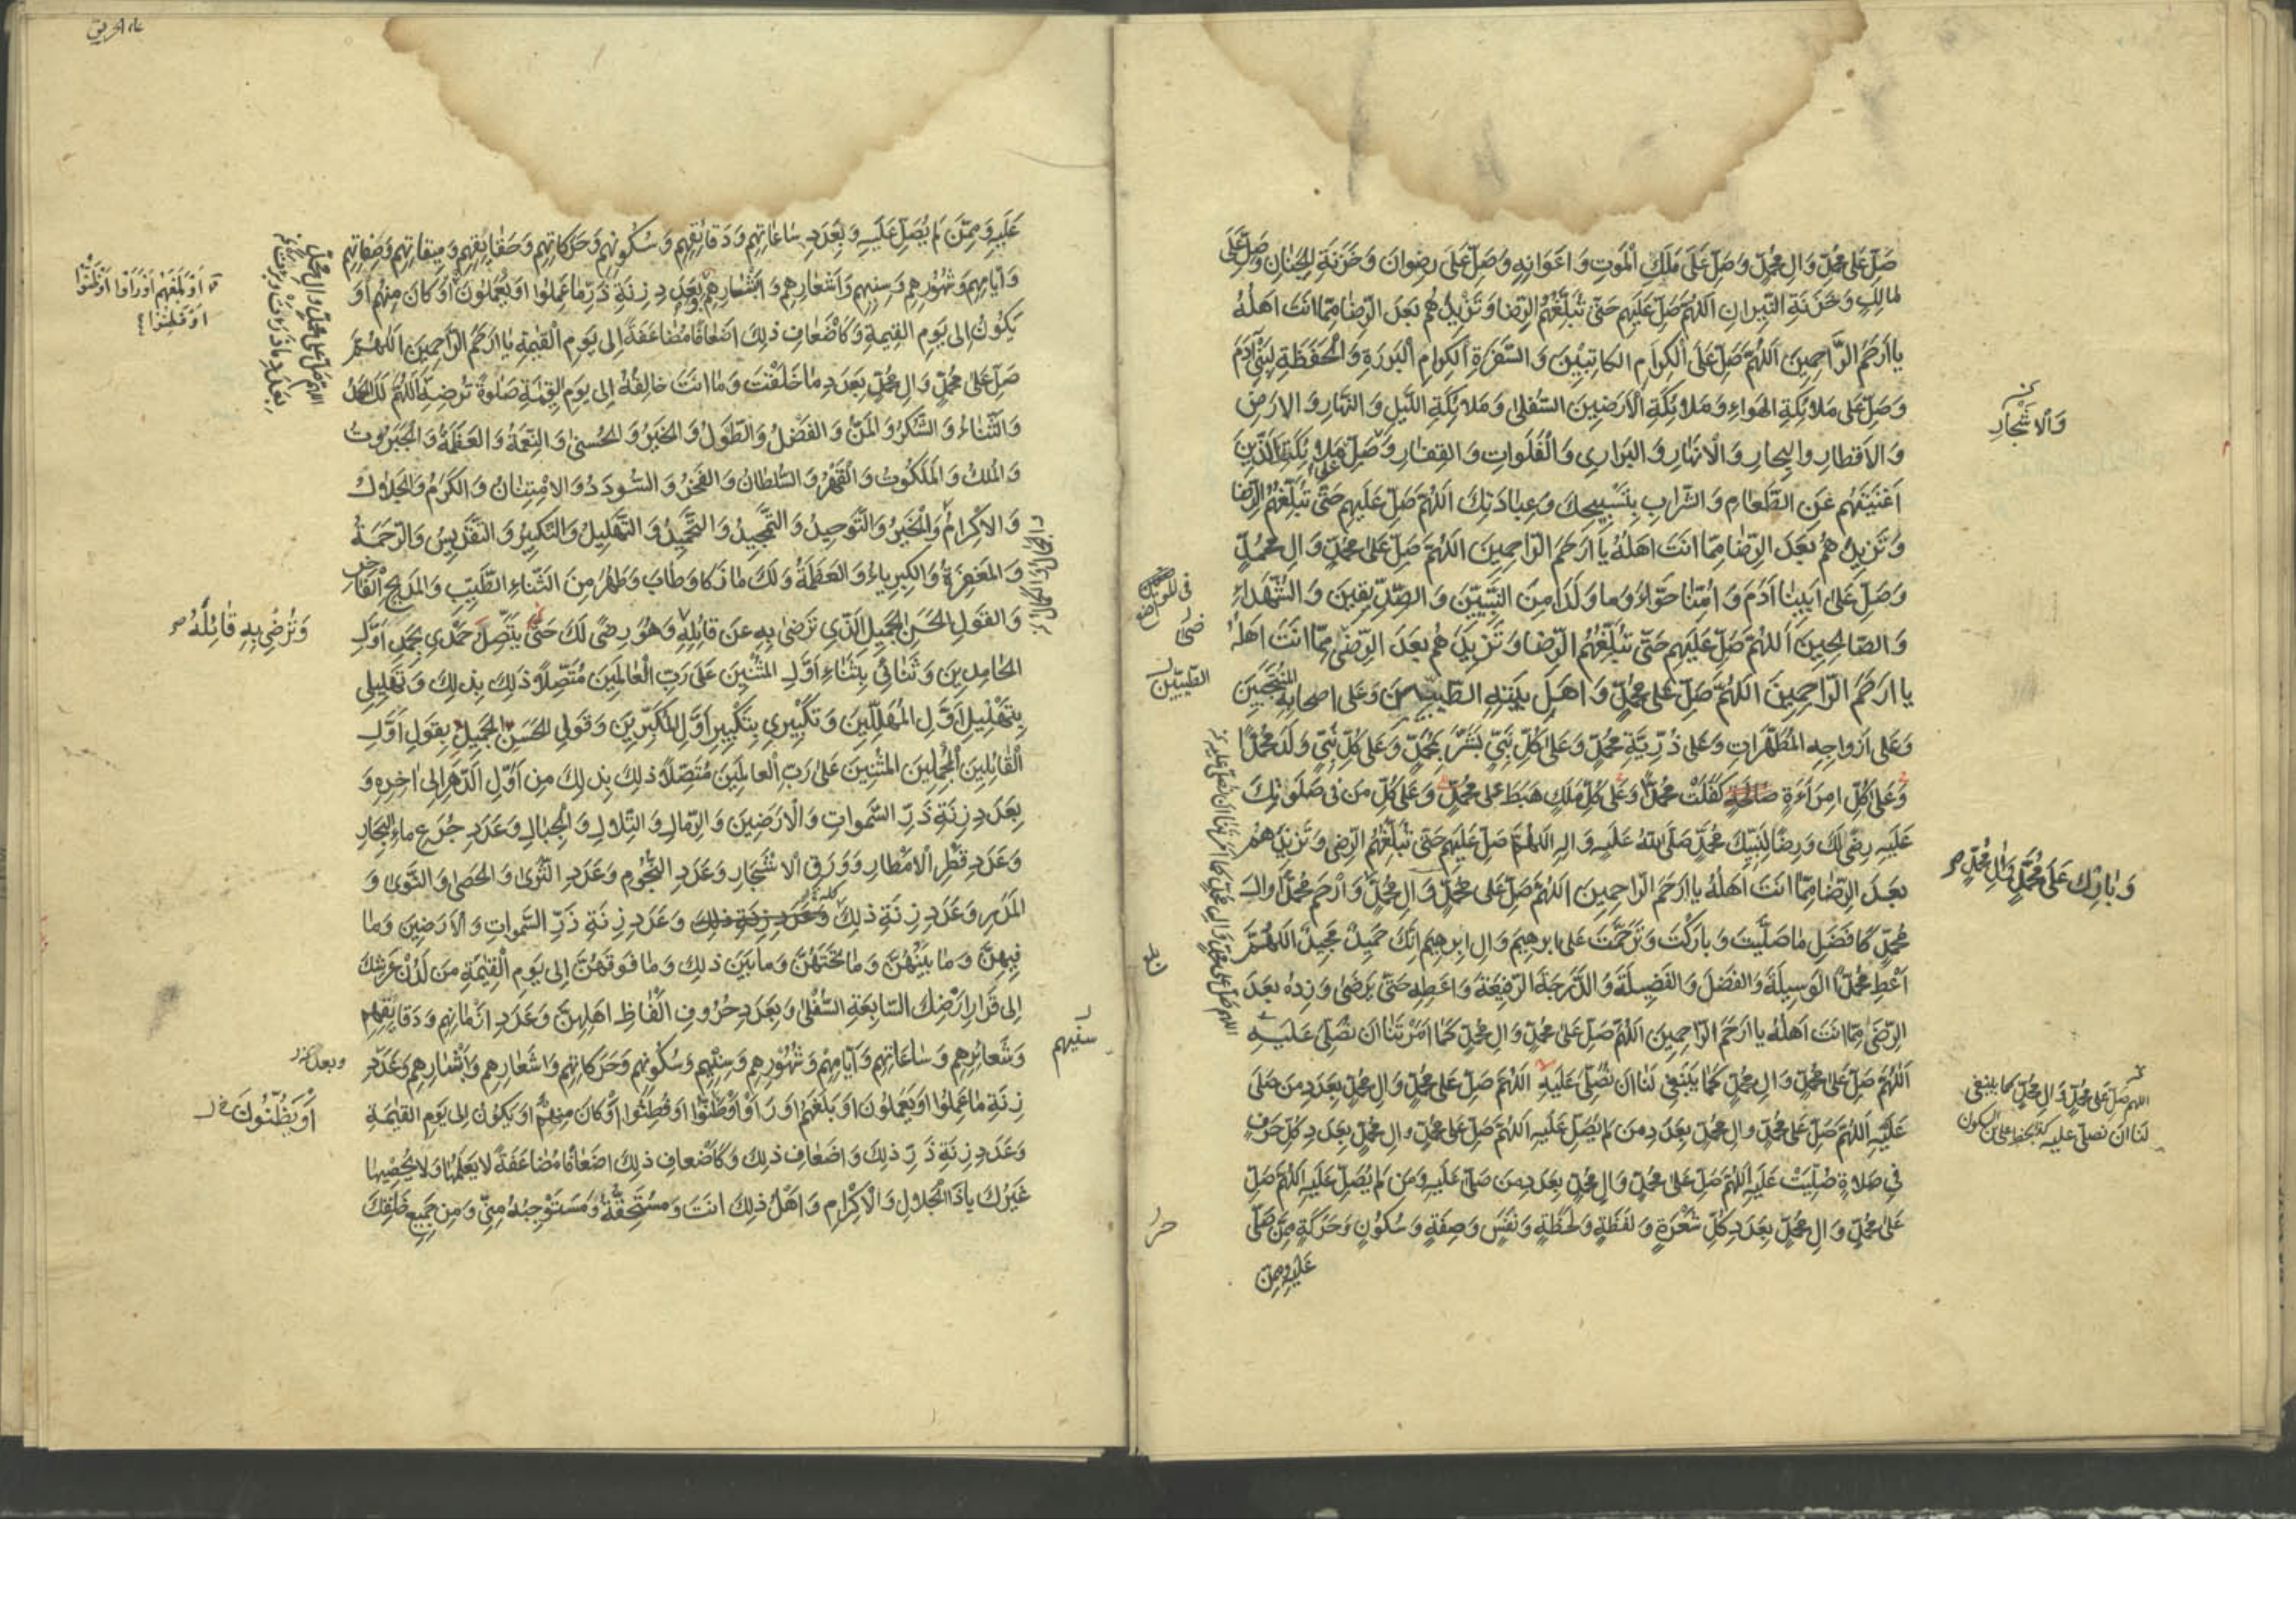 صَلِّ عَلى مُحَمَّدٍ وَآلِ مُحَمَّدٍ وَصَلِّ عَلى مَلَكِ الْمَوتِ وَاَعْوَانِهِ وَصَلِّ عَلى رِضوانَ وَخَزَنَةِ الجِنانِ وَصَلِّ عَلى
مالِكٍ وَخَزَنَةِ النّيرانِ اَللّهُمَّ صَلِّ عَلَيهِم حَتّى تُبَلِّغَهُمُ الرِّضا وَتَزِيدَهُم بَعدَ الرِّضا مِمّا انتَ اَهلُهُ
يا اَرحَمَ الرَّاحِمِينَ اَللّهُمَّ صَلِّ عَلَى الْكِرامِ الكاتِبِينَ وَالسَّفَرَةِ الْكِرامِ الْبَرَرَةِ وَالْحَفَظَةِ لِبَنِي آدَمَ
وَصَلِّ عَلى مَلائِكَةِ الهَواءِ وَمَلائِكَةِ الْاَرَضِينَ السُّفلى وَمَلائِكَةِ اللَّيلِ وَالنَّهارِ وَالارضِ
وَالاَقطارِ والبِحارِ وَالْاَنهارِ وَالبَرارِى وَالْفَلَواتِ وَالقِفارِ وَصَلِّ عَلى مَلائِكَتِكَ الَّذِينَ
اَغنَيتَهُم عَنِ الطَّعامِ وَالشَّرابِ بِتَسبِيحِكَ وَعِبادَتِكَ اَللّهُمَّ صَلِّ عَلَيهِم حَتّى تُبَلِّغَهُمُ الرِّضا
وَتَزِيدَهُم بَعدَ الرِّضا مِمّا انتَ اَهلُهُ يا اَرحَمَ الرّاحِمِينَ اَللّهُمَّ صَلِّ عَلى مُحَمَّدٍ وَآلِ مُحَمَّدٍ
وَصَلِّ عَلى اَبِينا آدَمَ وَاُمِّنا حَوّاءَ وَما وَلَدا مِنَ النَّبِيّينَ وَالصِّدّيقينَ وَالشُّهَداءِ
وَالصّالِحِينَ اَللّهُمَّ صَلِّ عَلَيهِم حَتّى تُبَلِّغَهُمُ الرِّضا وَتَزِيدَهُم بَعدَ الرِّضى مِمّا انتَ اَهلُهُ
يا ارحَمَ الرّاحِمِينَ اَللّهُمَّ صَلِّ عَلى مُحَمَّدٍ وَاَهلِ بَيتِهِ الطَّيِّبِينَ وَعَلى اصحابِهِ المُنتَجَبِينَ
وَعَلى اَزواجِهِ المُطَهَّراتِ وَعَلى ذُرِّيَّةِ مُحَمَّدٍ وَعَلى كُلِّ نَبِيٍّ بَشَّرَ بِمُحَمَّدٍ وَعَلى كُلِّ نَبِيٍّ وَلَدَ مُحَمَّدًا
وَعَلى كُلِّ امرَاَةٍ صالِحَةٍ كَفَلَت مُحَمَّدًا وَعَلى كُلِّ مَلَكٍ هَبَطَ عَلى مُحَمَّدٍ وَعَلى كُلِّ مَن فى صَلَواتِكَ
عَلَيهِ رِضًى لَكَ وَرِضًا لِنَبِيِّكَ مُحَمَّدٍ صَلَّى اللهُ عَلَيهِ وَآلِهِ اَللّهُمَّ صَلِّ عَلَيهِم حَتّى تُبَلِّغَهُمُ الرِّضى وَتَزِيدَهُم
بَعدَ الرِّضا مِمّا انتَ اَهلُهُ يا ارحَمَ الرّاحِمِينَ اَللّهُمَّ صَلِّ عَلى مُحَمَّدٍ وَآلِ مُحَمَّدٍ وَارْحَم مُحَمَّدًا وَآلَ
مُحَمَّدٍ كَاَفضَلِ ما صَلَّيتَ وَبارَكتَ وَتَرَحَّمتَ عَلى ابرهِيمَ وَآلِ ابرهِيمَ اِنَّكَ حَمِيدٌ مَجِيدٌ اَللّهُمَّ
اَعْطِ مُحَمَّدًا الوَسِيلَةَ وَالفَضلَ وَالفَضِيلَةَ وَالدَّرَجَةَ الرَّفِيعَةَ وَاَعطِهِ حَتّى يَرضى وَزِدهُ بَعدَ
الرِّضى مِمّا انتَ اَهلُهُ يا ارحَمَ الرّاحِمِينَ اَللّهُمَّ صَلِّ عَلى مُحَمَّدٍ وَآلِ مُحَمَّدٍ كَما اَمَرتَنا ان نُصَلِّىَ عَلَيهِ
اَللّهُمَّ صَلِّ عَلى مُحَمَّدٍ وَآلِ مُحَمَّدٍ كَما يَنبَغِى لَنا ان نُصَلِّىَ عَلَيهِ اَللّهُمَّ صَلِّ عَلى مُحَمَّدٍ وَآلِ مُحَمَّدٍ بِعَدَدِ مَن صَلّى
عَلَيهِ اَللّهُمَّ صَلِّ عَلى مُحَمَّدٍ وآلِ مُحَمَّدٍ بِعَدَدِ مَن لَم يُصَلِّ عَلَيهِ اَللّهُمَّ صَلِّ عَلى مُحَمَّدٍ وآلِ مُحَمَّدٍ بِعَدَدِ كُلِّ حَرفٍ
فى صَلاةٍ صُلِّيَت عَلَيهِ اَللّهُمَّ صَلِّ عَلى مُحَمَّدٍ وَآلِ مُحَمَّدٍ بِعَدَدِ مَن صَلّى عَلَيهِ وَمَن لَم يُصَلِّ عَلَيهِ اَللّهُمَّ صَلِّ
عَلى مُحَمَّدٍ وَآلِ مُحَمَّدٍ بِعَدَدِ كُلِّ شَعْرَةٍ وَلَفظَةٍ وَلَحظَةٍ وَنَفَسٍ وَصِفَةٍ وَسُكُونٍ وَحَرَكَةٍ مِمَّن صَلّى
عَلَيهِ وَمِمَّن
وَالاَشْجارِ
وَبارِك عَلى مُحَمَّدٍ وَآلِ مُحَمَّدٍ
اللهم صَلِّ عَلى مُحَمَّدٍ وَآلِ مُحَمَّدٍ كما ينبغى
لَنا ان نصلّى عليه
الطيّبين
عَلَيهِ وَمِمَّن لَم يُصَلِّ عَلَيهِ وَبِعَدَدِ ساعاتِهِم وَدَقائِقِهِم وَسُكُونِهِم وَحَرَكاتِهِم وَحَقائِقِهِم وَمِيقاتِهِم وَصِفاتِهِم
وَاَيّامِهِم وَشُهُورِهِم وَسِنِيهِم وَاَشعارِهِم وَاَبشارِهِم وَبِعَدَدِ زِنَةِ ذَرِّ ما عَمِلُوا اَو يَعمَلُونَ اَو كانَ مِنهُم اَو
يَكُونُ اِلى يَومِ القِيمَةِ وَكَاَضعافِ ذلِكَ اَضعافًا مُضاعَفَةً اِلى يَومِ القِيمَةِ يا ارحَمَ الرّاحِمِينَ اَللّهُمَّ
صَلِّ عَلى مُحَمَّدٍ وَآلِ مُحَمَّدٍ بِعَدَدِ ما خَلَقتَ وَما انتَ خالِقُهُ اِلى يَومِ القِيمَةِ صَلوةً تُرضِيهِ اَللّهُمَّ لَكَ الحَمدُ
وَالثَّناءُ وَالشُّكرُ وَالمَنُّ وَالفَضلُ وَالطَّولُ وَالخَيرُ وَالحُسنى وَالنِّعمَةُ وَالعَظَمَةُ وَالجَبَرُوتُ
وَالمُلكُ وَالمَلَكُوتُ وَالقَهرُ وَالسُّلطانُ وَالفَخرُ وَالسُّودَدُ وَالامتِنانُ وَالكَرَمُ وَالجَلالُ
وَالاِكرامُ وَالخَيرُ وَالتَّوحِيدُ وَالتَّمجِيدُ وَالتَّحمِيدُ وَالتَّهلِيلُ وَالتَّكبِيرُ وَالتَّقدِيسُ وَالرَّحمَةُ
وَالمَغفِرَةُ وَالكِبرِياءُ وَالعَظَمَةُ وَلَكَ ما زَكا وَطابَ وَطَهُرَ مِنَ الثَّناءِ الطَّيِّبِ وَالمَدِيحِ الفاخِرِ
وَالقَولِ الحَسَنِ الجَمِيلِ الَّذِى تَرضى بِهِ عَن قائِلِهِ وَهُوَ رِضًى لَكَ حَتّى يَتَّصِلَ حَمدِى بِحَمدِ اَوَّلِ
الحامِدِينَ وَثَنائِى بِثَناءِ اَوَّلِ المُثنِينَ عَلى رَبِّ العالَمِينَ مُتَّصِلًا ذلِكَ بِذلِكَ وَتَهلِيلِى
بِتَهلِيلِ اَوَّلِ المُهَلِّلِينَ وَتَكبِيرِى بِتَكبِيرِ اَوَّلِ المُكَبِّرِينَ وَقَولِى الحَسَنِ الجَمِيلِ بِقَولِ اَوَّلِ
القائِلِينَ المُجمِلِينَ المُثنِينَ عَلى رَبِّ العالَمِينَ مُتَّصِلًا ذلِكَ بِذلِكَ مِن اَوَّلِ الدَّهرِ اِلى آخِرِهِ وَ
بِعَدَدِ زِنَةِ ذَرِّ السَّمواتِ وَالاَرَضِينَ وَالرِّمالِ وَالتِّلالِ وَالجِبالِ وَعَدَدِ جُرَعِ ماءِ البِحارِ
وَعَدَدِ قَطرِ الاَمطارِ وَوَرَقِ الاَشجارِ وَعَدَدِ النُّجُومِ وَعَدَدِ الثَّرى وَالحَصى وَالنَّوى وَ
المَدَرِ وَعَدَدِ زِنَةِ ذلِكَ كله وَعَدَدِ زِنَةِ ذلِكَ وَعَدَدِ زِنَةِ ذَرِّ السَّمواتِ وَالاَرَضِينَ وَما
فِيهِنَّ وَما بَينَهُنَّ وَما تَحتَهُنَّ وَما بَينَ ذلِكَ وَما فَوقَهُنَّ اِلى يَومِ القِيمَةِ مِن لَدُن عَرشِكَ
اِلى قَرارِ اَرضِكَ السّابِعَةِ السُّفلى وَبِعَدَدِ حُرُوفِ اَلفاظِ اَهلِهِنَّ وَعَدَدِ اَزمانِهِم وَدَقائِقِهِم
وَشَعائِرِهِم وَساعاتِهِم وَاَيّامِهِم وَشُهُورِهِم وَسِنِيهِم وَسُكُونِهِم وَحَرَكاتِهِم وَاَشعارِهِم وَاَبشارِهِم وَعَدَدِ
زِنَةِ ما عَمِلُوا اَو يَعمَلُونَ اَو بَلَغَهُم اَو رَاَوا اَو ظَنُّوا اَو فَطِنُوا اَو كانَ مِنهُم اَو يَكُونُ اِلى يَومِ القِيمَةِ
وَعَدَدِ زِنَةِ ذَرِّ ذلِكَ وَاَضعافِ ذلِكَ وَكَاَضعافِ ذلِكَ اَضعافًا مُضاعَفَةً لا يَعلَمُها وَلا يُحصِيها
غَيرُكَ يا ذَا الجَلالِ وَالاِكرامِ وَاَهلُ ذلِكَ انتَ وَمُستَحِقُّهُ وَمُستَوجِبُهُ مِنّى وَمِن جَمِيعِ خَلقِكَ
اَو بَلَغَهُم اَو رَاَوا اَو ظَنُّوا
اَو فَطِنُوا
اللهم صَلِّ عَلى مُحَمَّدٍ وَآلِ مُحَمَّدٍ
وَتُرضِى بِهِ قائِلَهُ
سنيهم
وبعدد
اَو يَظُنُّونَ